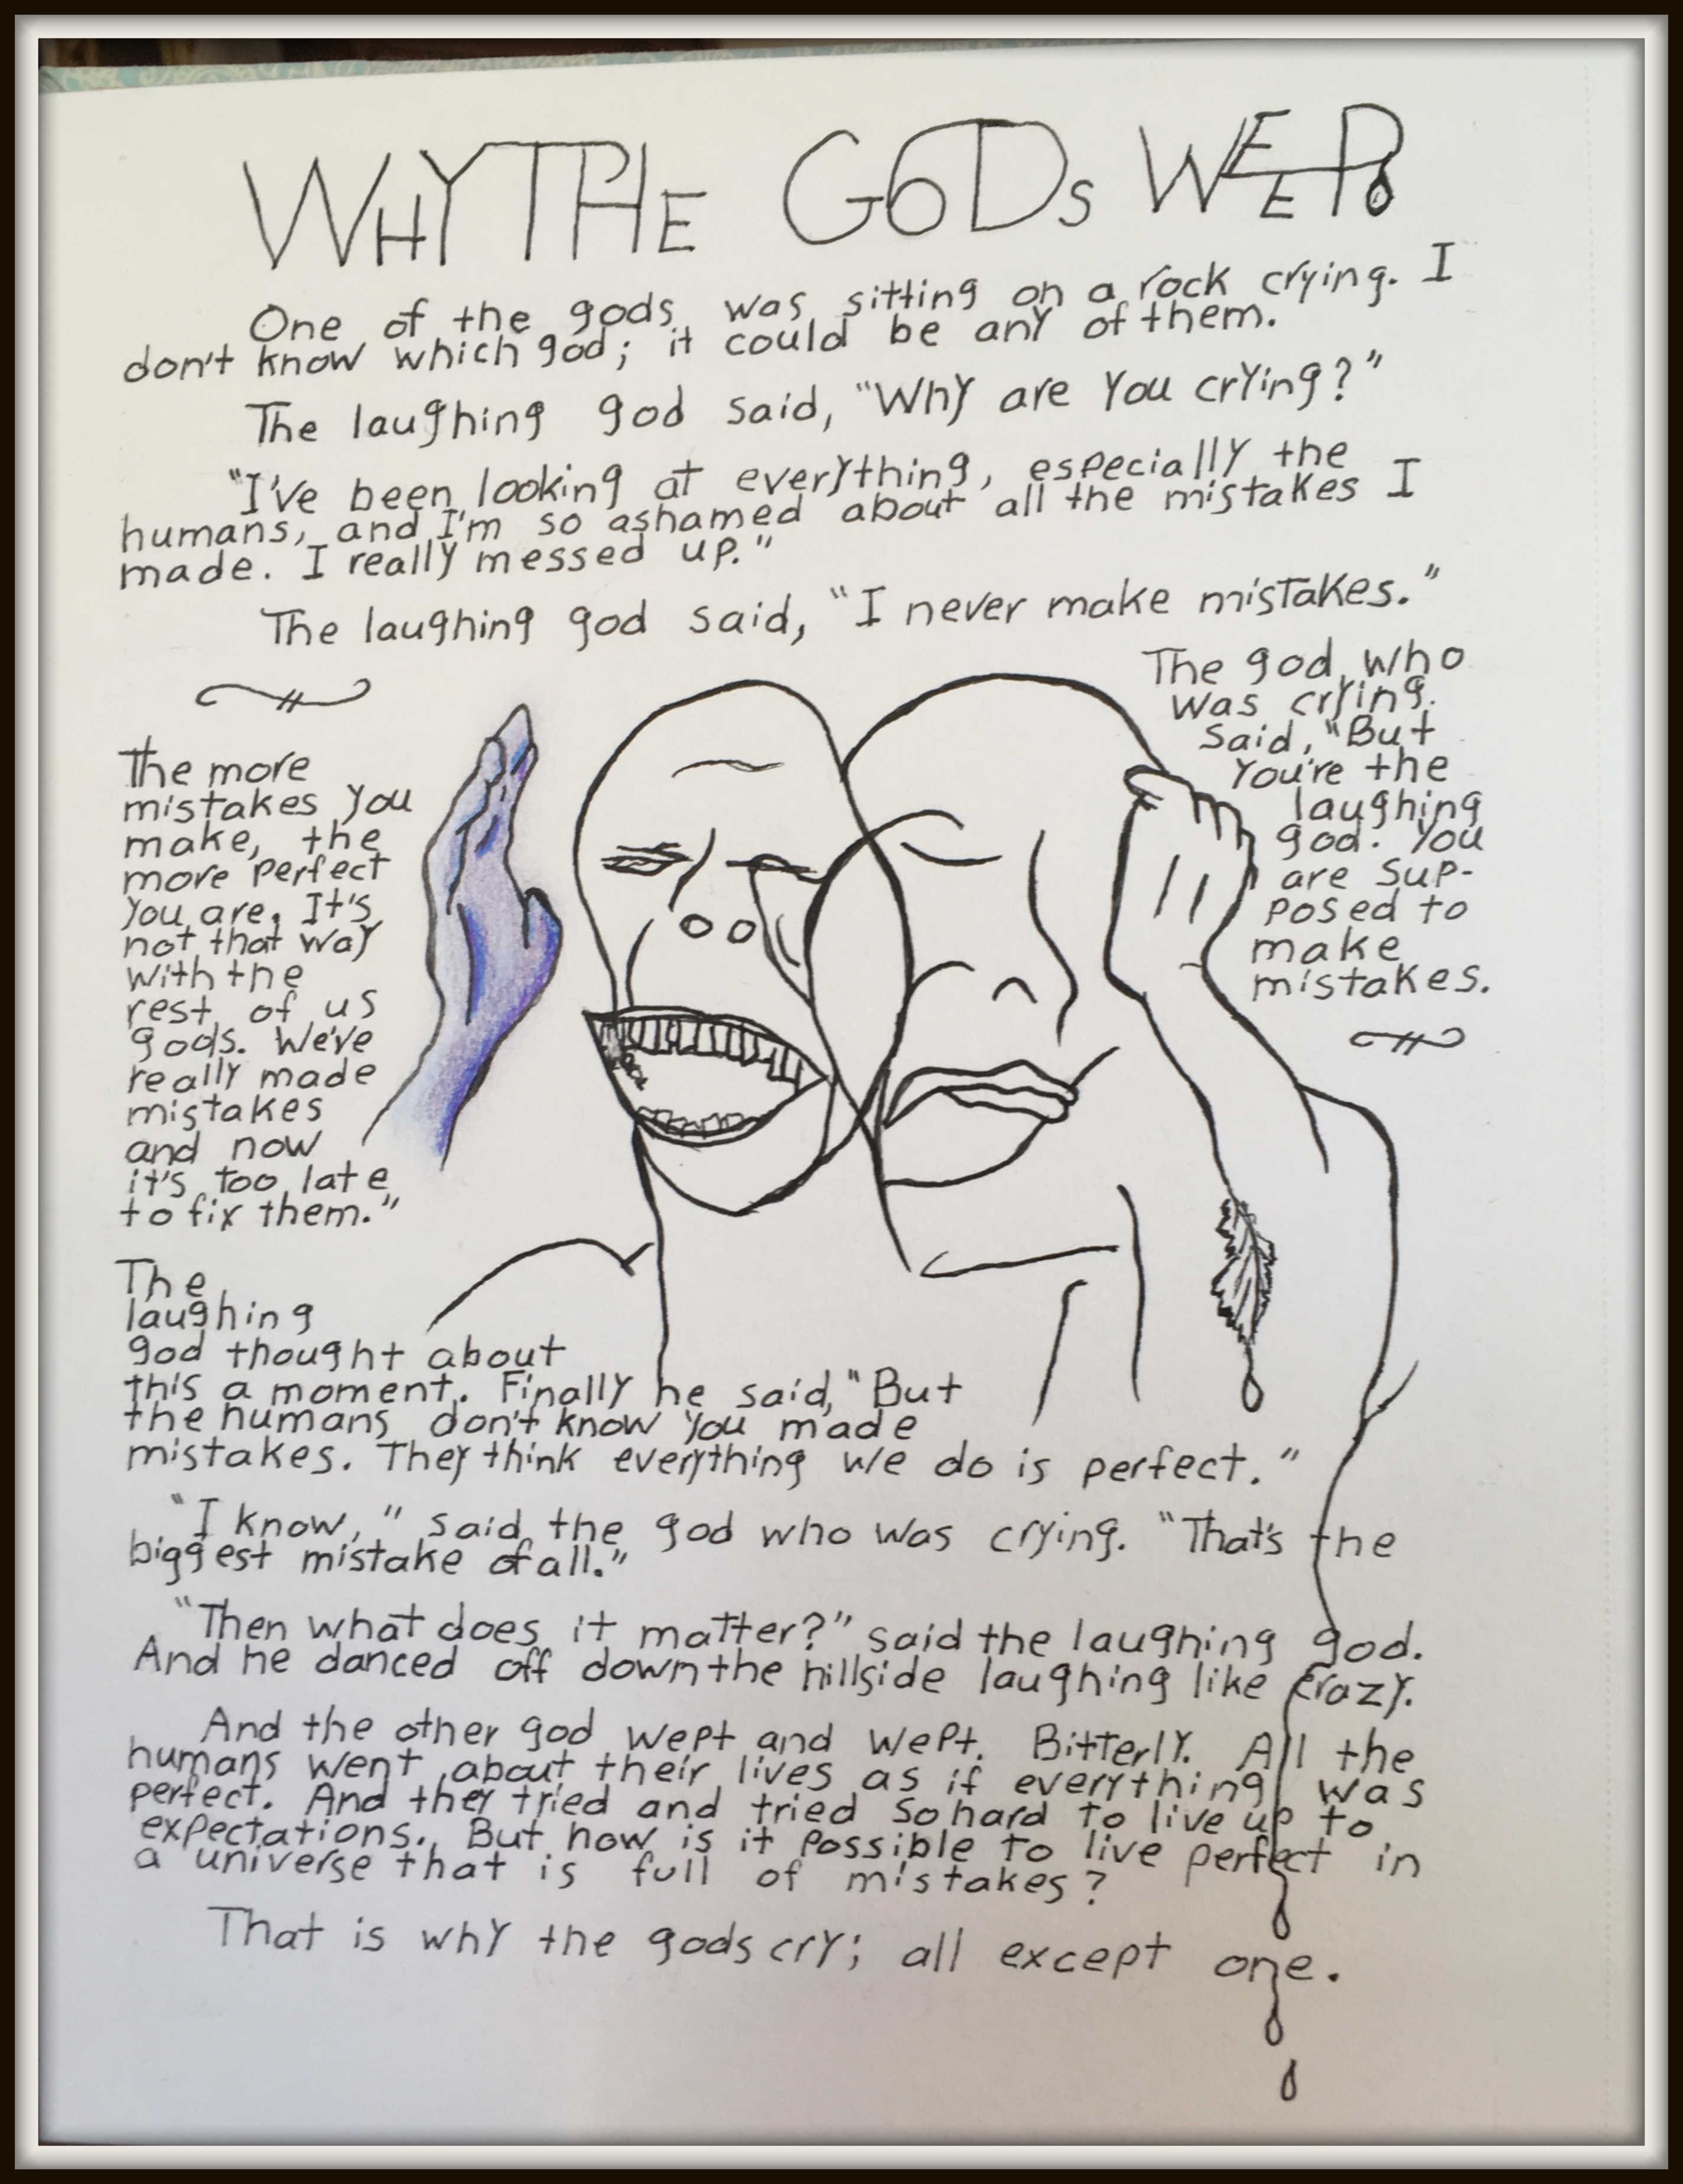 WHY THE GODS WEEP
One of the gods was sitting on a rock crying. I
don't know which god; it could be any of them.
The laughing god said, "Why are you crying?"
"I've been looking at everything, especially the
humans, and I'm so ashamed about all the mistakes I
made. I really messed up."
The laughing god said, "I never make mistakes."
The god who
was crying
said, "But
you're the
laughing
god. You
are sup-
posed to
make
mistakes.
The more
mistakes you
make, the
more perfect
you are. It's
not that way
with the
rest of us
gods. We've
really made
mistakes
and now
it's too late
to fix them."
The
laughing
god thought about
this a moment. Finally he said, "But
the humans don't know you made
mistakes. They think everything we do is perfect."
"I know," said the god who was crying. "That's the
biggest mistake of all."
"Then what does it matter?" said the laughing god.
And he danced off down the hillside laughing like crazy.
And the other god wept and wept. Bitterly. All the
humans went about their lives as if everything was
perfect. And they tried and tried so hard to live up to
expectations. But how is it possible to live perfect in
a universe that is full of mistakes?
That is why the gods cry; all except one.